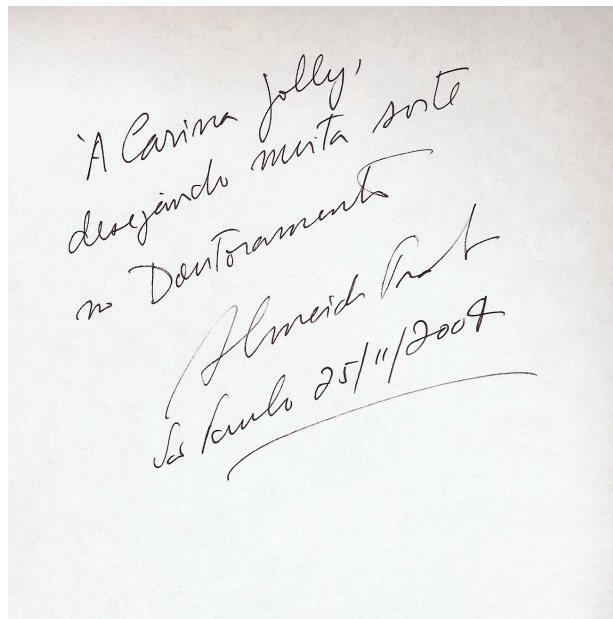 À Carina Jolly,
desejando muita sorte
no Doutoramento
Almeida Prado
São Paulo 25/11/2004